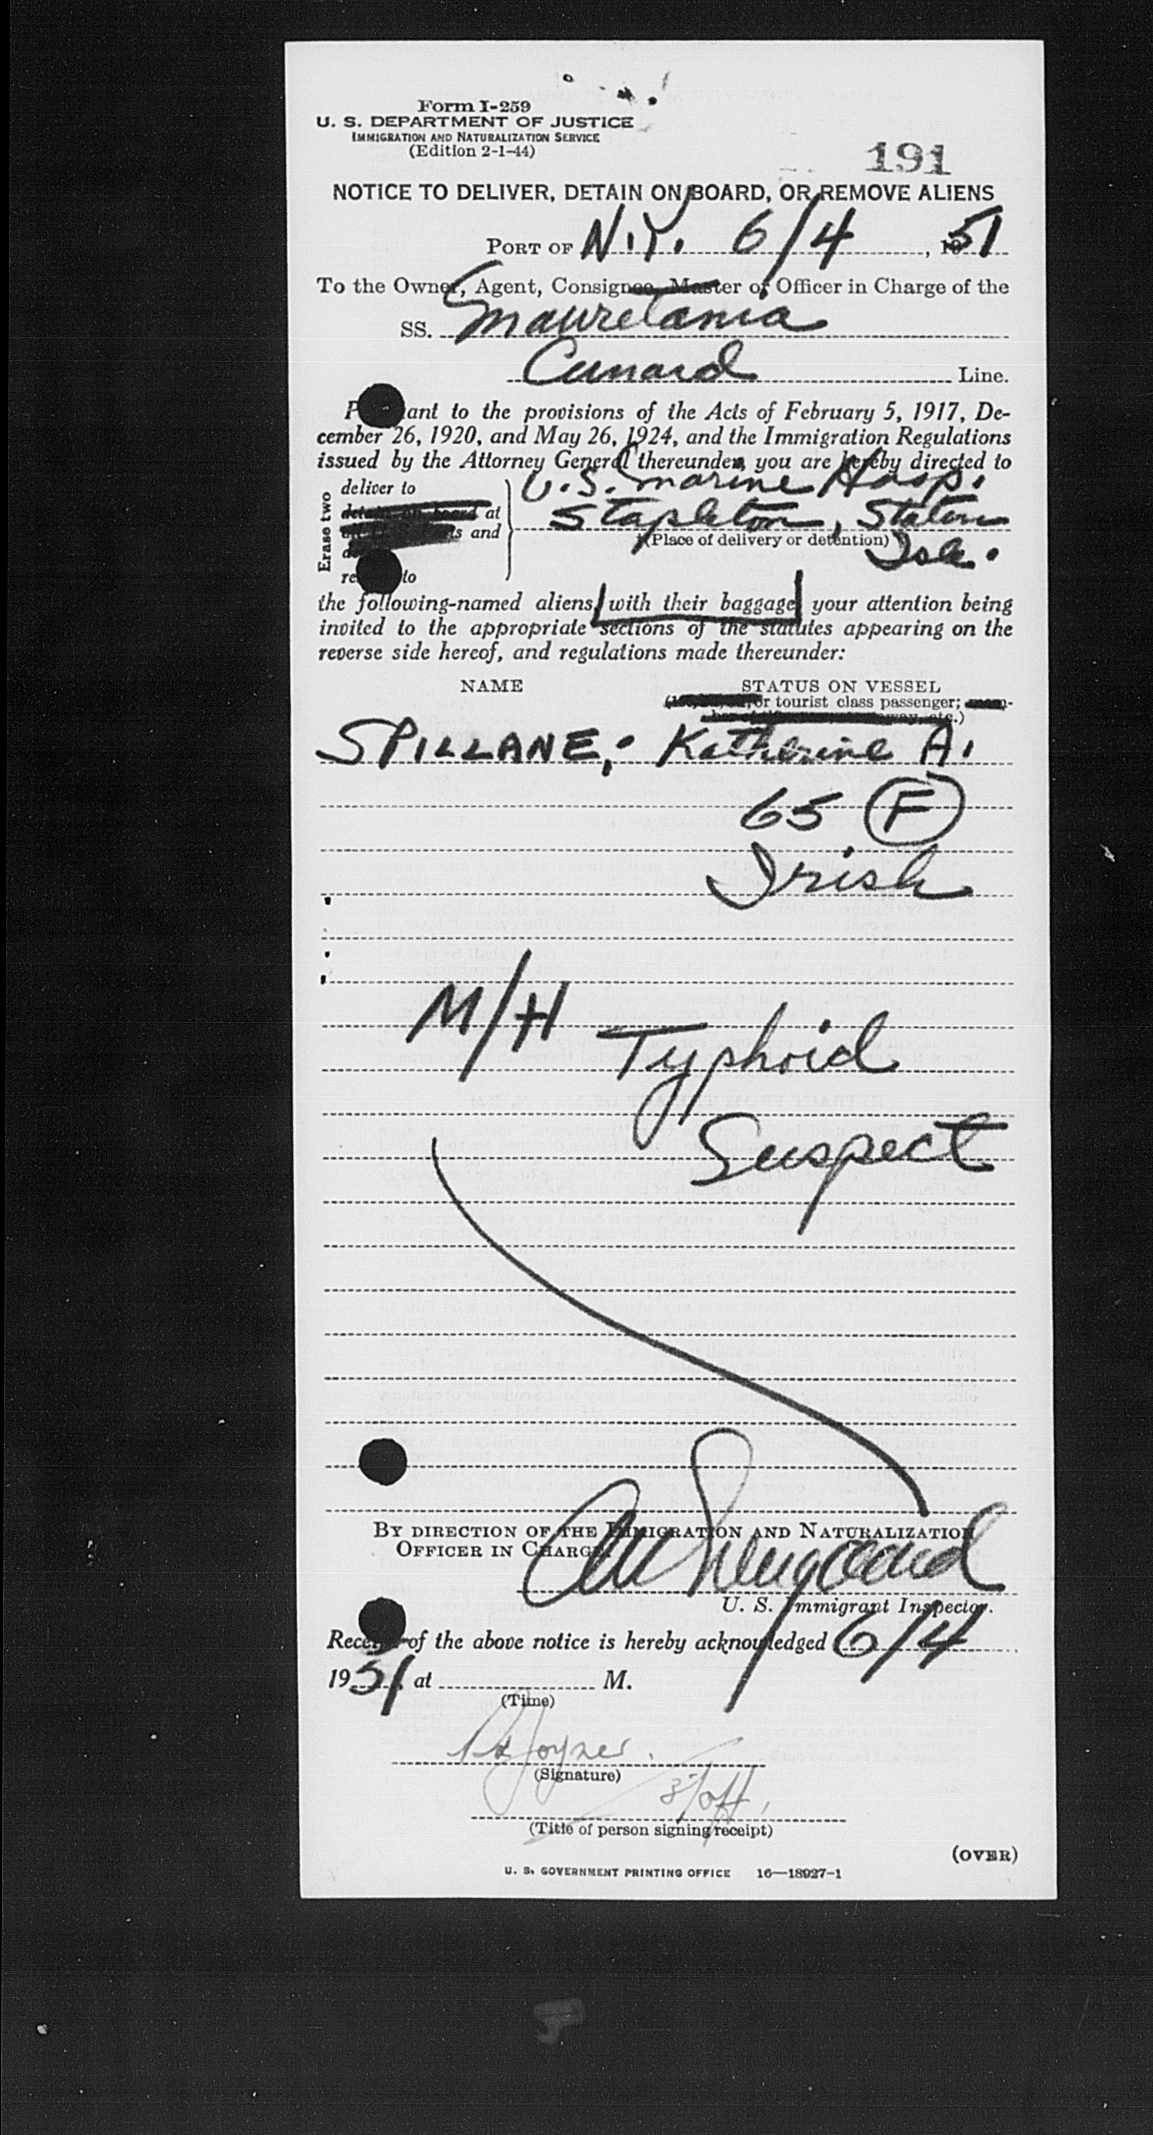 Form I-259
U. S. DEPARTMENT OF JUSTICE
IMMIGRATION AND NATURALIZATION SERVICE
(Edition 2-1-44)
191
NOTICE TO DELIVER, DETAIN ON BOARD, OR REMOVE ALIENS
PORT OF N.Y. 6/4, 1951
To the Owner, Agent, Consignee, Master or Officer in Charge of the
SS. Mauretania
Cunard Line.
P ant to the provisions of the Acts of February 5, 1917, De-
cember 26, 1920, and May 26, 1924, and the Immigration Regulations
issued by the Attorney General thereunder, you are hereby directed to
Erase two
deliver to
detain on board at
s and
re to
U.S. Marine Hosp.
Stapleton, Staten
(Place of delivery or detention)
Isl.
the following-named aliens, with their baggage, your attention being
invited to the appropriate sections of the statutes appearing on the
reverse side hereof, and regulations made thereunder:
NAME STATUS ON VESSEL
or tourist class passenger; mem-
SPILLANE, Katherine A.
65 F
Irish
M/H Typhoid
Suspect
BY DIRECTION OF THE IMMIGRATION AND NATURALIZATION
OFFICER IN CHARGE.
U. S. Immigrant Inspector.
Receipt of the above notice is hereby acknowledged 6/4
1951, at M.
(Time)
Joyner
(Signature)
(Title of person signing receipt)
(OVER)
U. S. GOVERNMENT PRINTING OFFICE 16—18927-1